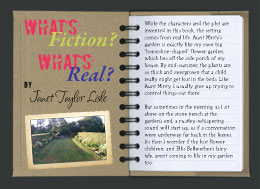 WHAT'S
Fiction?
WHAT'S
Real?
BY
Janet Taylor Lisle
While the characters and the plot are
invented in this book, the setting
comes from real life. Aunt Minty's
garden is exactly like my own big
"horseshoe-shaped" flower garden,
which lies off the side porch of my
house. By mid-summer, the plants are
so thick and overgrown that a child
really might get lost in the beds. Like
Aunt Minty, I usually give up trying to
control things out there.
But sometimes in the evening, as I sit
alone on the stone bench at the
garden's end, a rustley-whispering
sound will start up, as if a conversation
were underway far back in the leaves.
It's then I wonder if the lost flower
children, and Ellis Bellwether's fairy
tale, aren't coming to life in my garden
too.